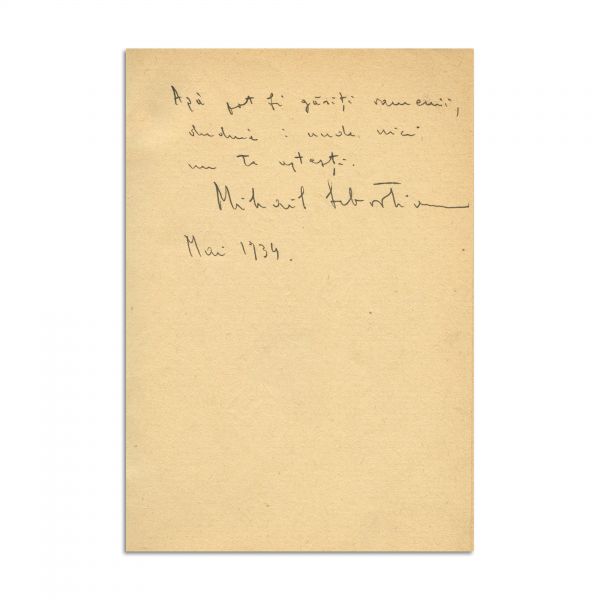 Așă pot fi găsiți oamenii,
: unde nici
nu te aștepți.
Mihail Sebastian
Mai 1934.